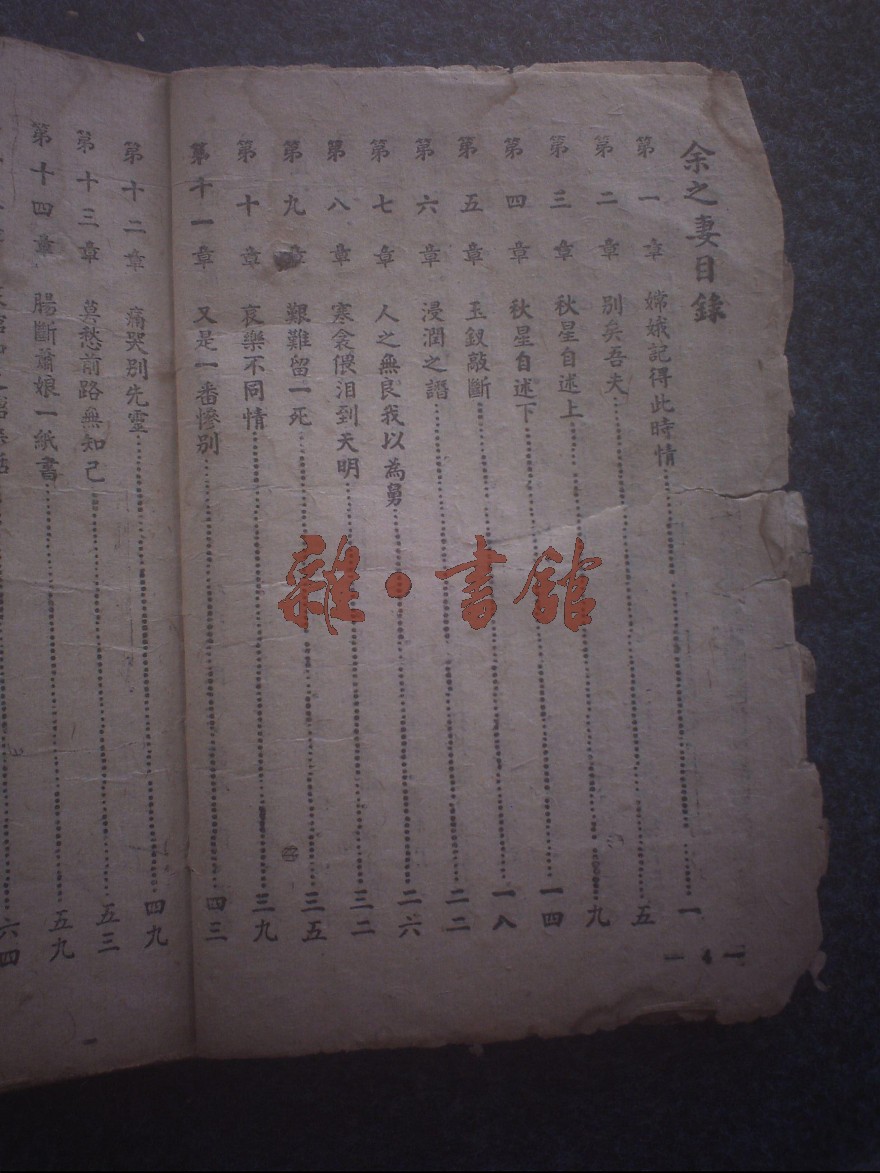 余之妻目錄
第一章 嫦娥記得此時情…………一
第二章 別矣吾夫…………五
第三章 秋星自述上…………九
第四章 秋星自述下…………一四
第五章 玉釵敲斷…………一八
第六章 浸潤之譖…………二二
第七章 人之無良我以為舅…………二六
第八章 寒衾偎泪到天明…………三二
第九章 艱難留一死…………三五
第十章 哀樂不同情…………三九
第十一章 又是一番慘別…………四三
第十二章 痛哭別先靈…………四九
第十三章 莫愁前路無知己…………五三
第十四章 腸斷蕭娘一紙書…………五九
六四
— 4 —
雜·書館